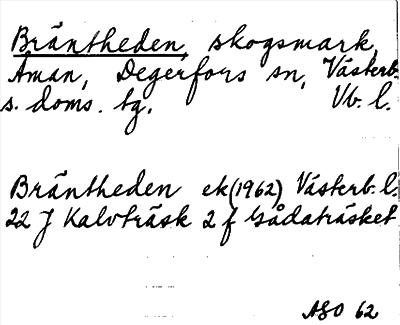 Bräntheden, skogsmark,
Åman, Degerfors sn, Västerb.
s. doms. tg. Vb. l.
Bräntheden ek (1962) Västerb. l.
22 J Kalvträsk 2 f Gådaträsket
ASO 62